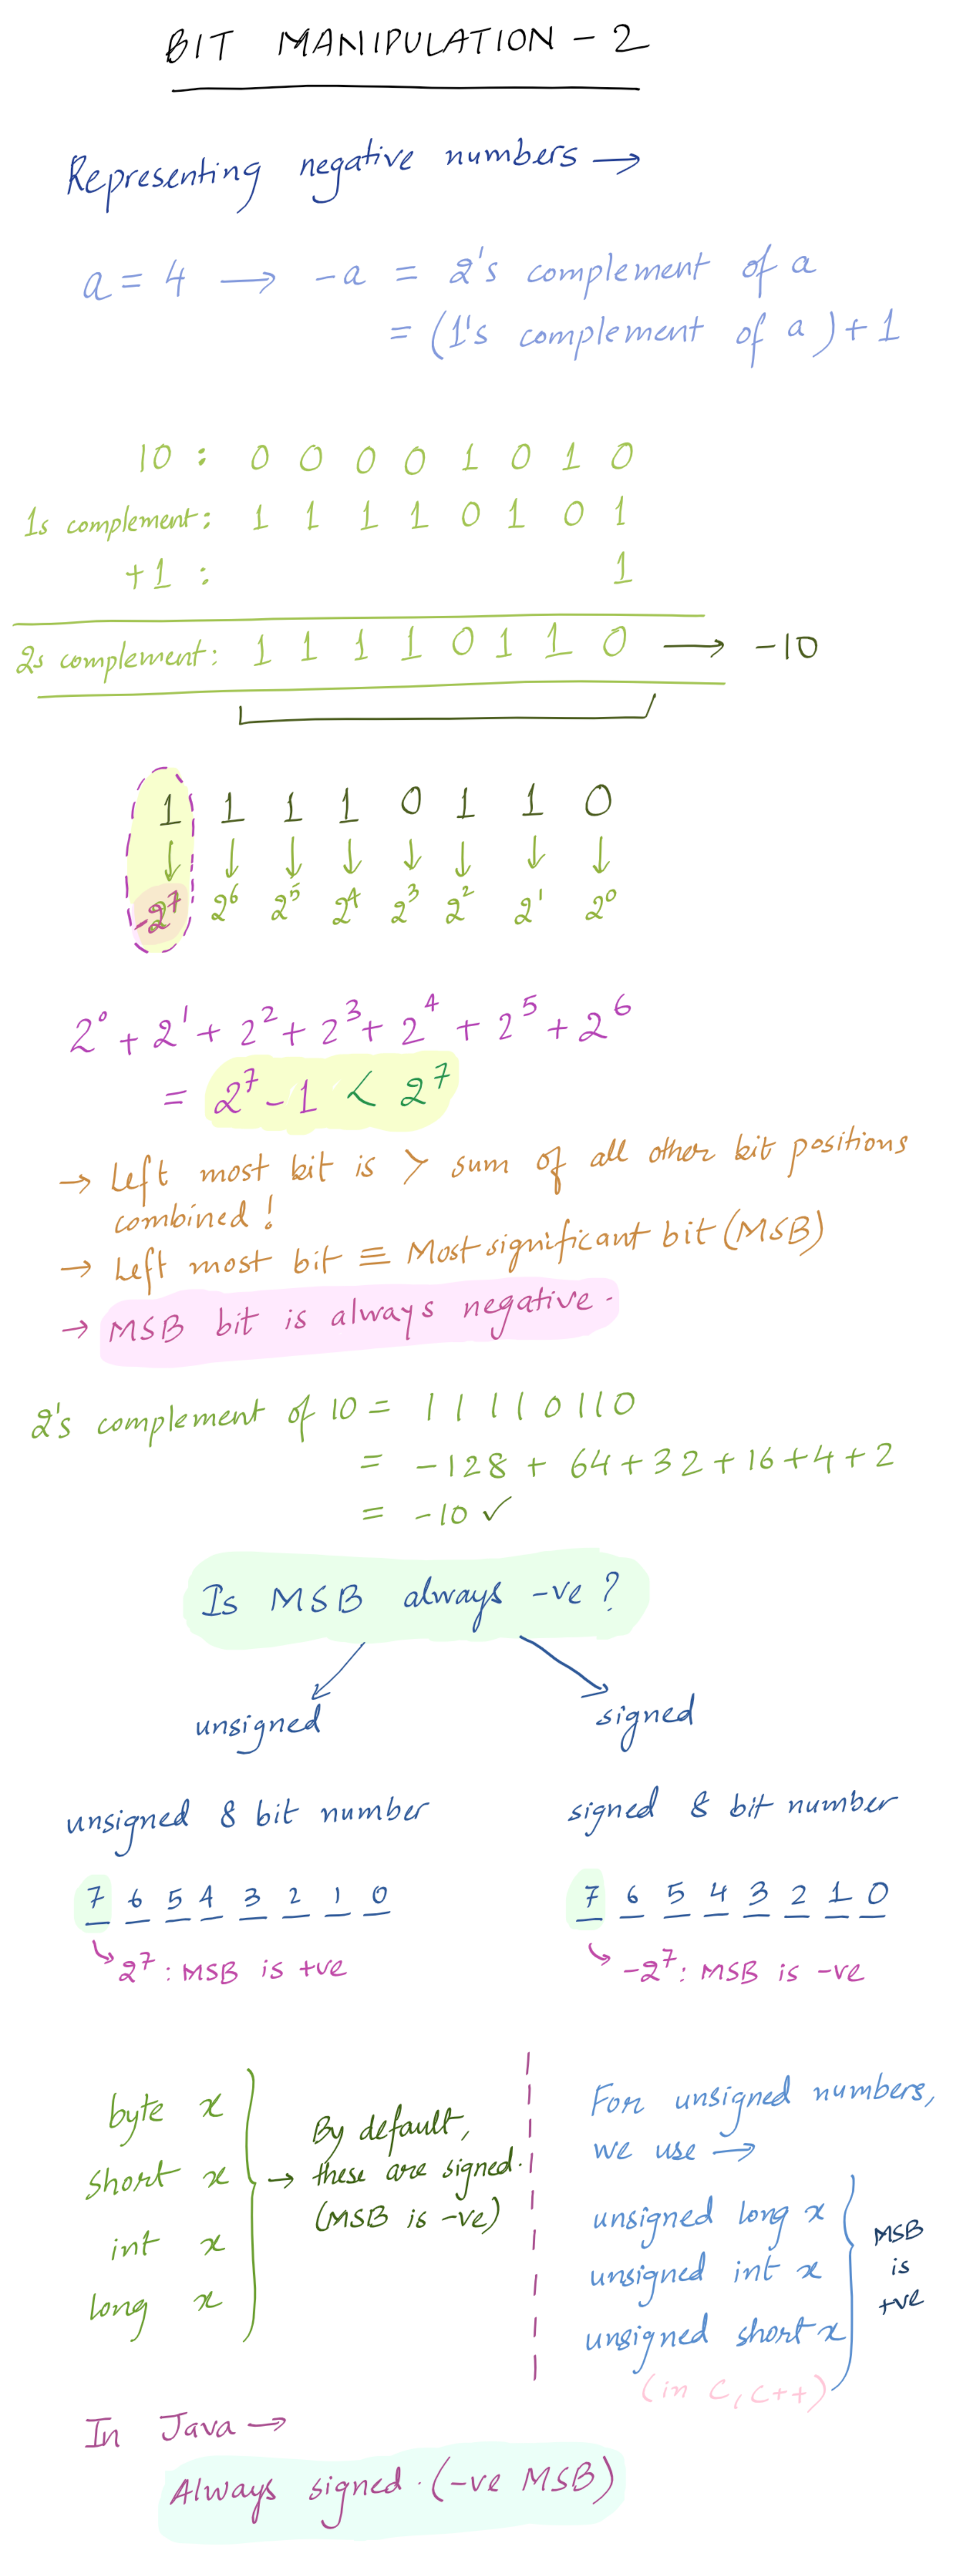 BIT MANIPULATION - 2
Representing negative numbers →
a = 4 → -a = 2's complement of a
= (1's complement of a) + 1
10 : 0 0 0 0 1 0 1 0
1s complement: 1 1 1 1 0 1 0 1
+1 : 1
2s complement: 1 1 1 1 0 1 1 0 → -10
1 1 1 1 0 1 1 0
↓ ↓ ↓ ↓ ↓ ↓ ↓ ↓
-2⁷ 2⁶ 2⁵ 2⁴ 2³ 2² 2¹ 2⁰
2⁰ + 2¹ + 2² + 2³ + 2⁴ + 2⁵ + 2⁶
= 2⁷ - 1 < 2⁷
→ Left most bit is > sum of all other bit positions
combined!
→ Left most bit ≡ Most significant bit (MSB)
→ MSB bit is always negative.
2's complement of 10 = 1 1 1 1 0 1 1 0
= -128 + 64 + 32 + 16 + 4 + 2
= -10 ✓
Is MSB always -ve?
unsigned
signed
unsigned 8 bit number
7 6 5 4 3 2 1 0
2⁷ : MSB is +ve
signed 8 bit number
7 6 5 4 3 2 1 0
-2⁷ : MSB is -ve
byte x
short x
int x
long x
→ By default,
these are signed.
(MSB is -ve)
For unsigned numbers,
we use →
unsigned long x
unsigned int x
unsigned short x
(in C, C++)
MSB
is
+ve
In Java →
Always signed. (-ve MSB)